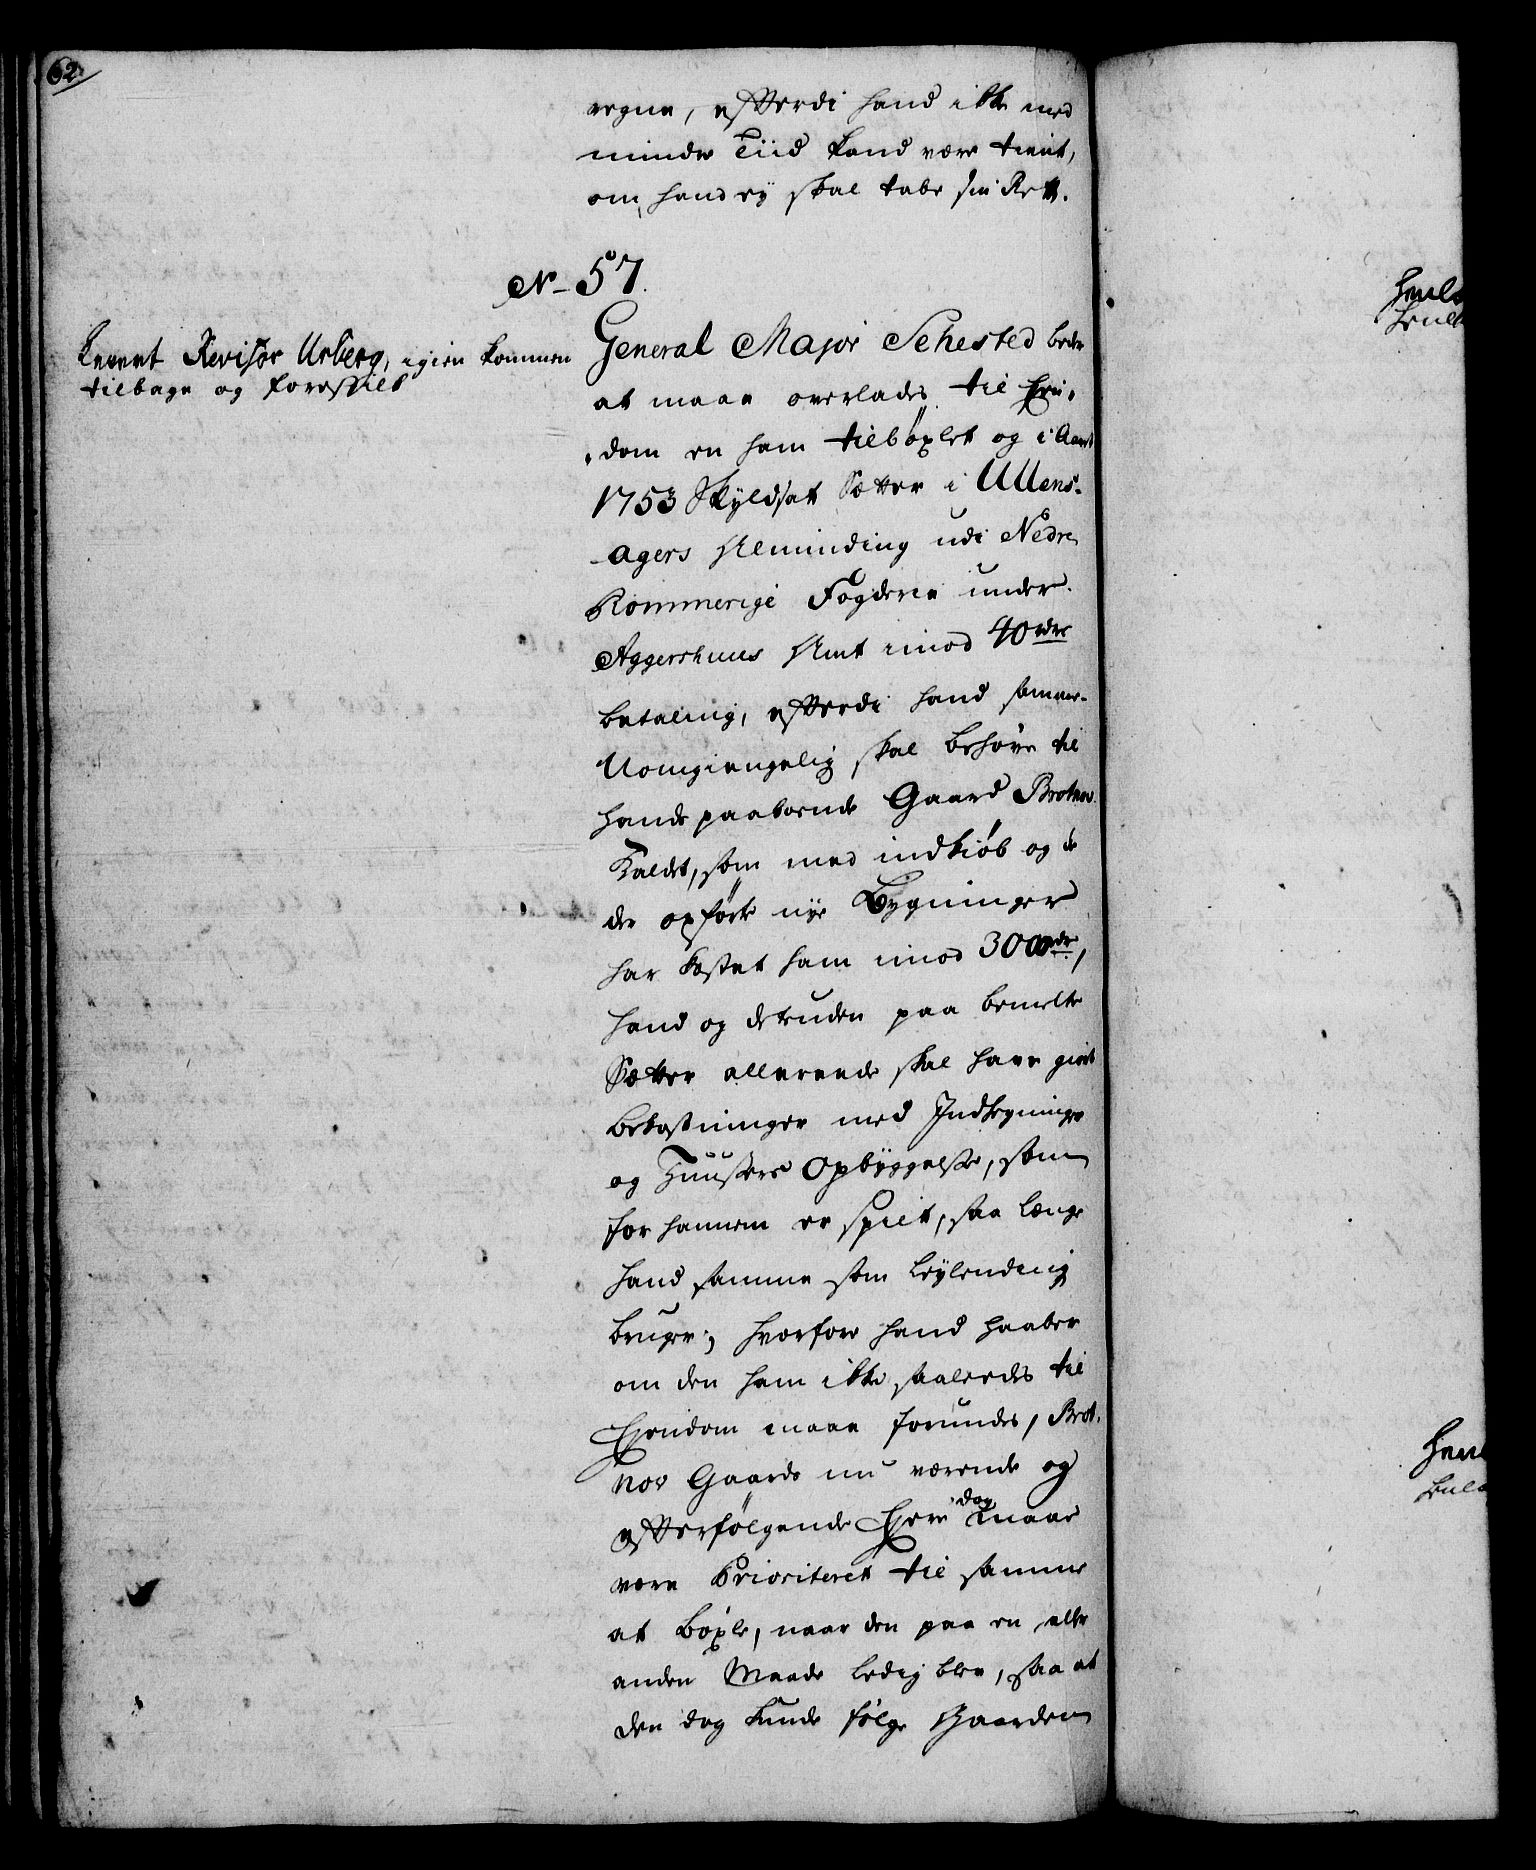 62
regne, efftterdi hand ikke med
mindre Tiid kand være tient,
om hand ey skal tabe sin Rett.
No 57.
Levert Revisor Urberg, igien kommen
tilbage og forestilt
General Major Sehested beder
at maae overlades til Eyen-
dom en ham tilböxlet og i Aaret
1753 Skyldsatt Sætter i Ullens-
agers Alminding udi Nedre
Rommerige Fogderie under
Aggershuus Amt imod 40 rdrs
betaling, effterdi hand samme
Uomgiengelig skal behøve til
hands paaboende Gaard Brotnov
Kaldet, som med indkiøb og de
der opførte nye Bygninger
har kostet ham imod 3000 rdr,
hand og desuden paa bemelte
Sætter allereede skal have giort
bekostninger med Indhegninger
og Huusers Opbyggelse, som
for hannem er spilt, saa længe
hand samme som Leylending
bruger; hvorfore hand haaber
om den ham ikke saaledes til
Eyendom maae forundes, Brot-
nov Gaards nu værende og
efftterfølgende Eyere dog maae
være Prioriteret til samme
at böxle, naar den paa en eller
anden Maade ledig blev, saa at
den dog kunde følge Gaarden